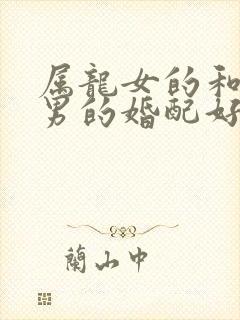 属龍女的和
男的婚配好
蘭山中